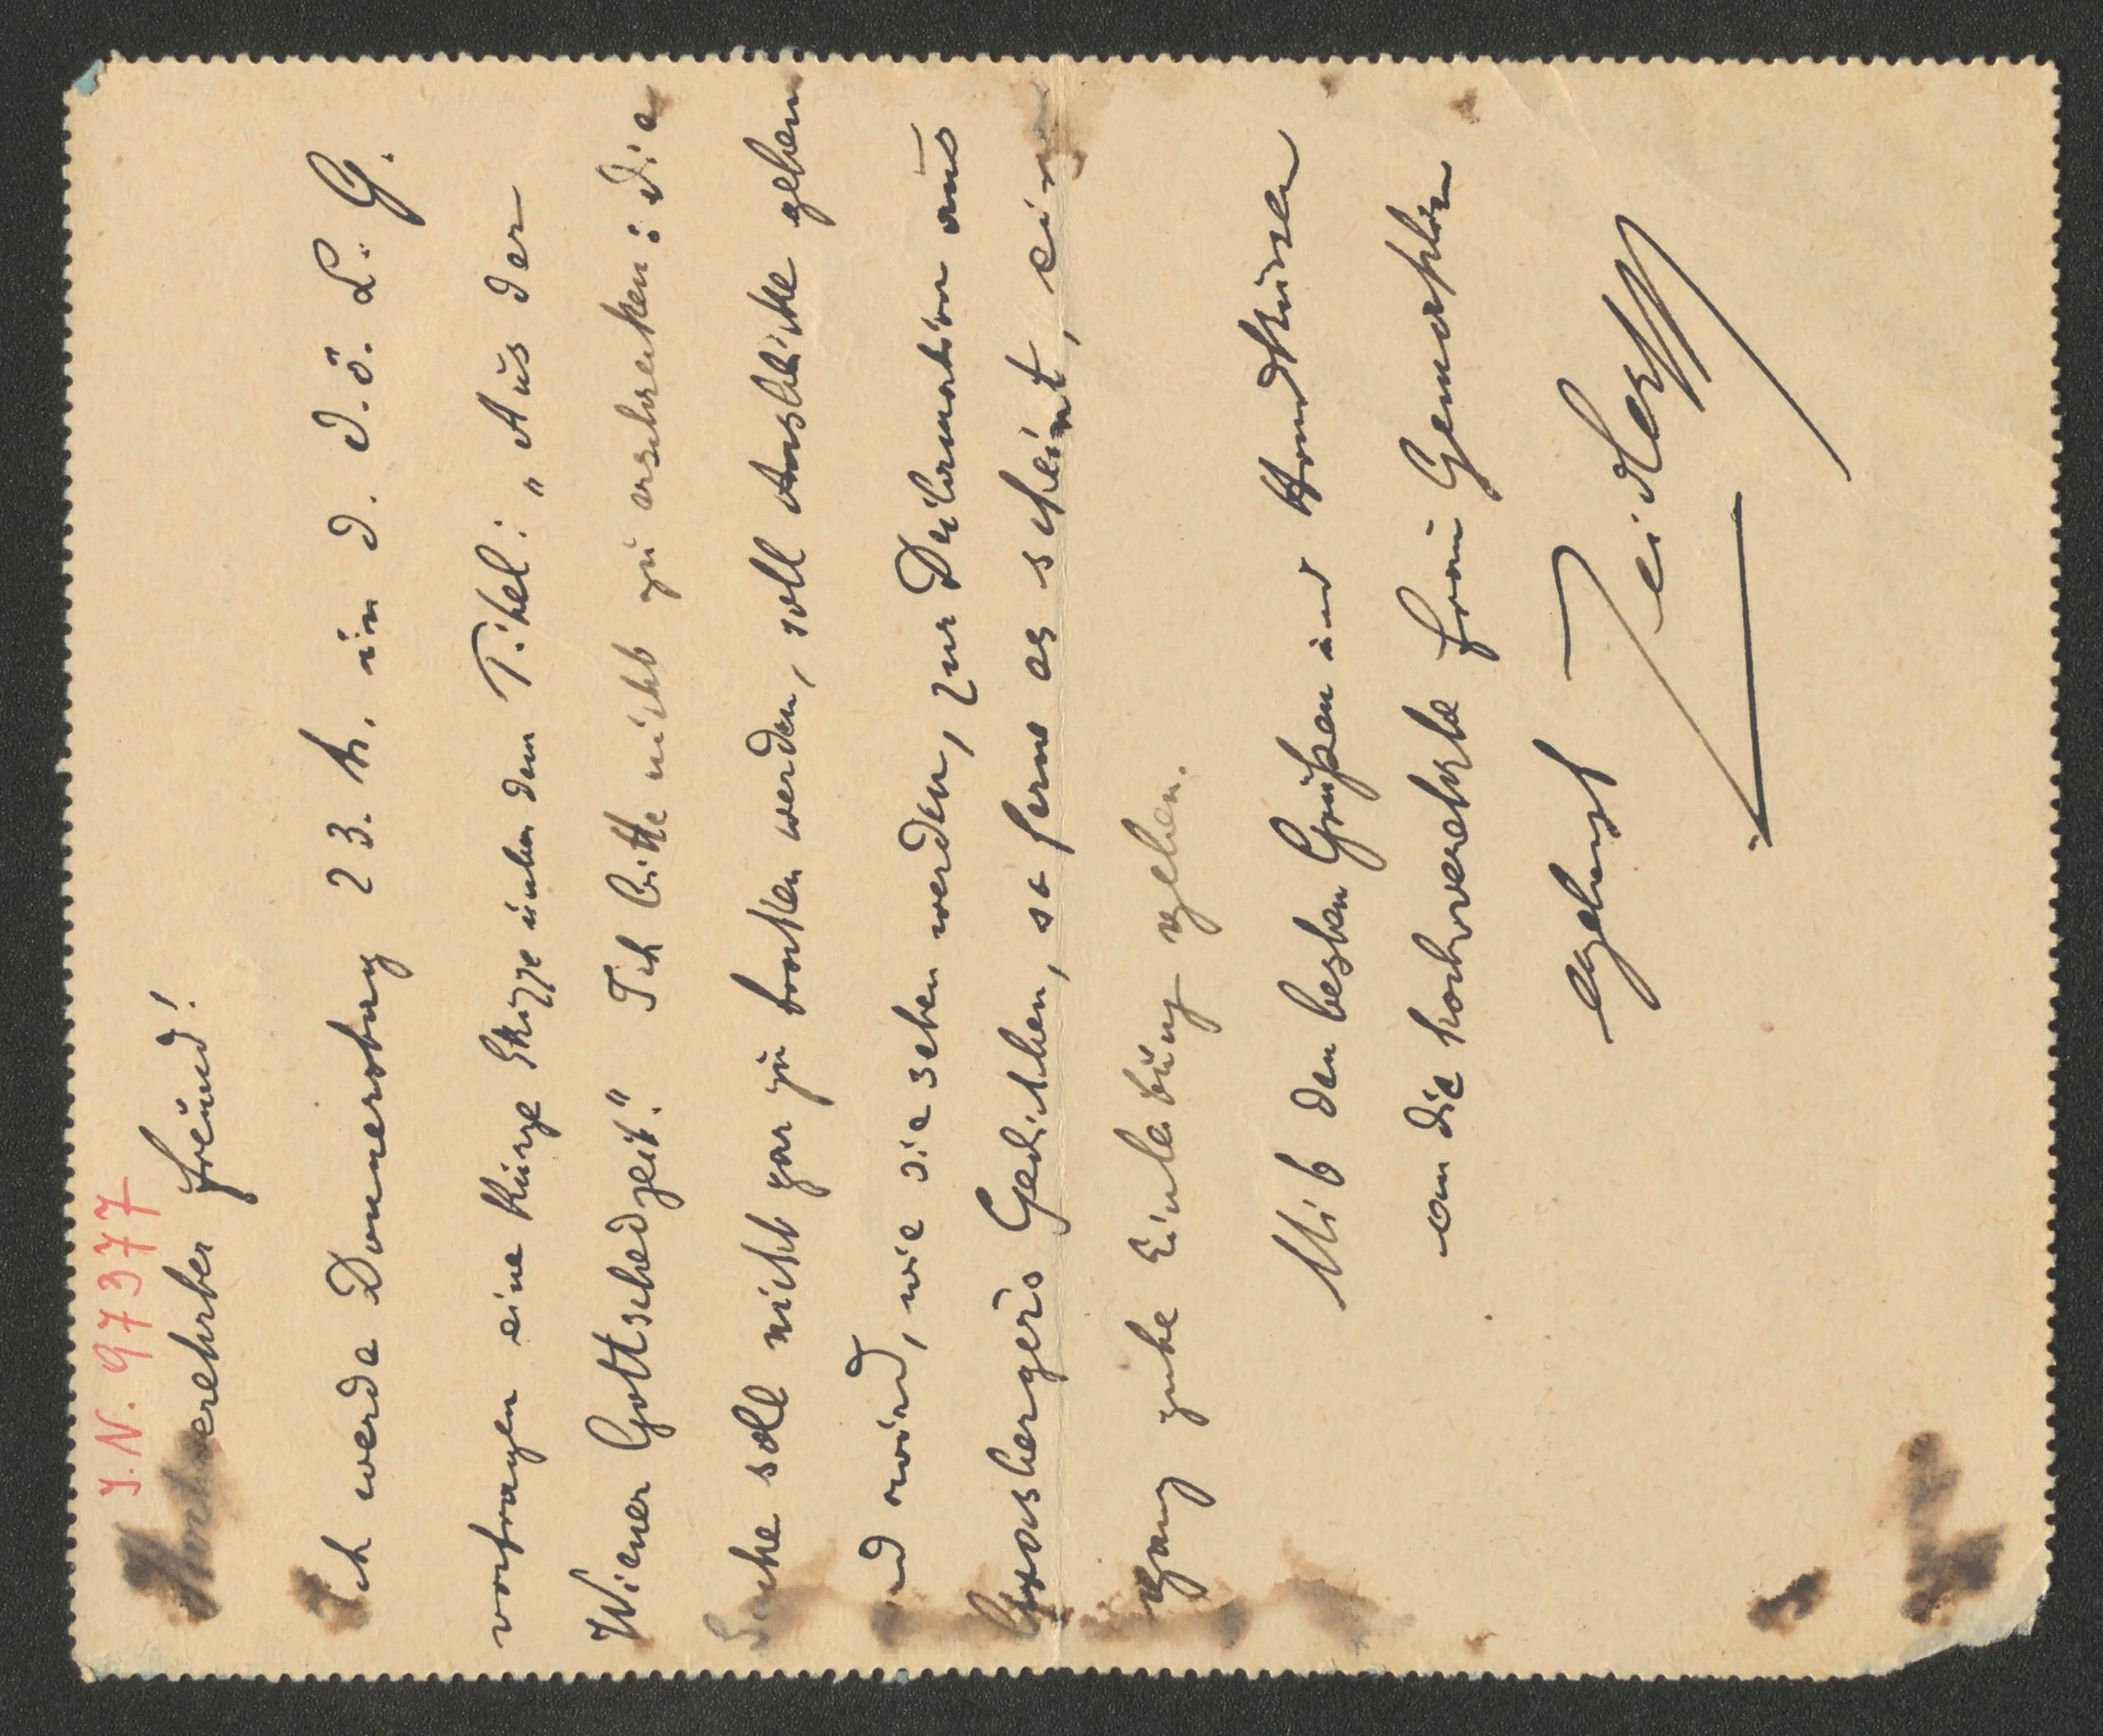 J.N. 97377
Hochverehrter Freund!
Ich werde Donnerstag 23. h. in d. d.ö. L. G.
vortragen eine kurze Skizze unter dem Titel: „Aus der
Wiener Gottschedzeit." Ich bitte nicht zu erschrecken: die
Sache soll nicht gar zu trocken werden, soll Ausblicke geben
und wird, wie Sie sehen werden, zur Deklamation aus
Grasbergers Gedichten, so ferne es scheint, ein
ganz gute Einleitung geben.
Mit den besten Grüßen und Handküssen
an die hochverehrte Frau Gemahlin
ergebenst Zeidler